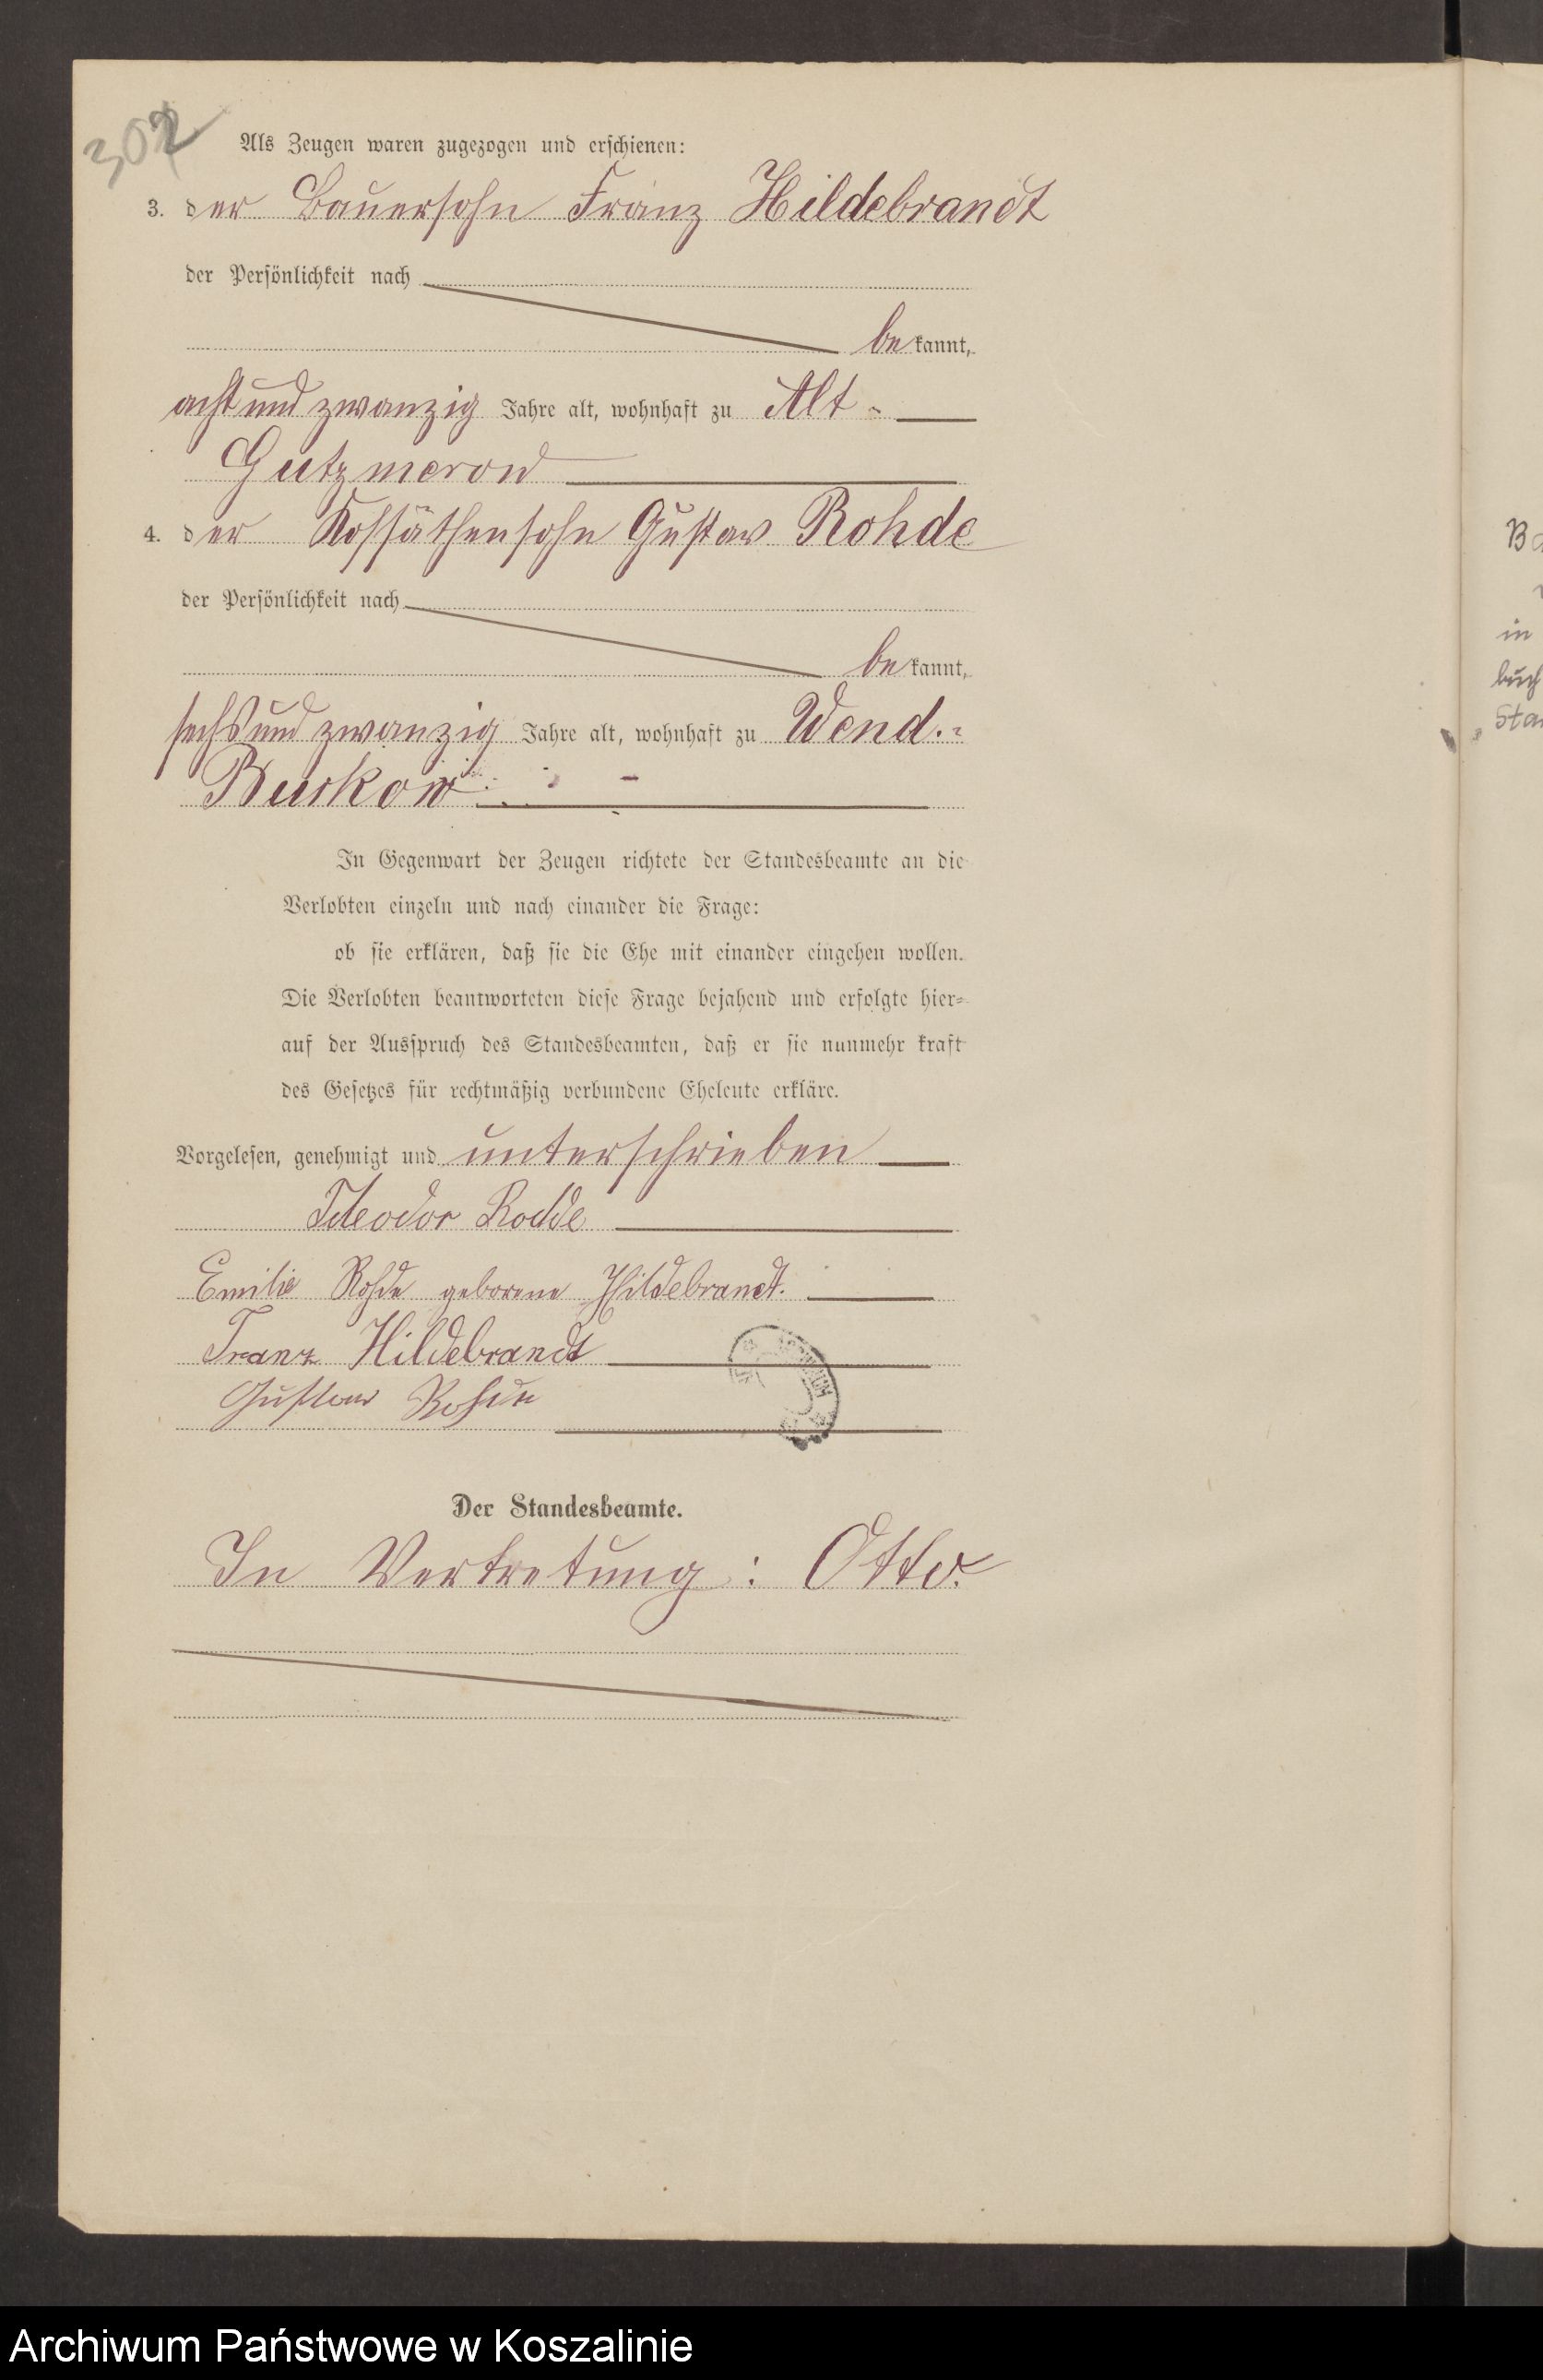 302
Als Zeugen waren zugezogen und erschienen:
3. der Bauersohn Franz Hildebrandt
der Persönlichkeit nach
bekannt,
achtundzwanzig Jahre alt, wohnhaft zu Alt-
Gutzmerow
4. der Kossäthensohn Gustav Rohde
der Persönlichkeit nach
bekannt,
sechsundzwanzig Jahre alt, wohnhaft zu Wend.-
Buckow
In Gegenwart der Zeugen richtete der Standesbeamte an die
Verlobten einzeln und nach einander die Frage:
ob sie erklären, daß sie die Ehe mit einander eingehen wollen.
Die Verlobten beantworteten diese Frage bejahend und erfolgte hier-
auf der Ausspruch des Standesbeamten, daß er sie nunmehr kraft
des Gesetzes für rechtmäßig verbundene Eheleute erkläre.
Vorgelesen, genehmigt und unterschrieben
Theodor Rohde
Emilie Rohde geborene Hildebrandt.
Franz Hildebrandt
Gustav Rohde
Der Standesbeamte.
In Vertretung: Otto.
in
buch
Archiwum Państwowe w Koszalinie